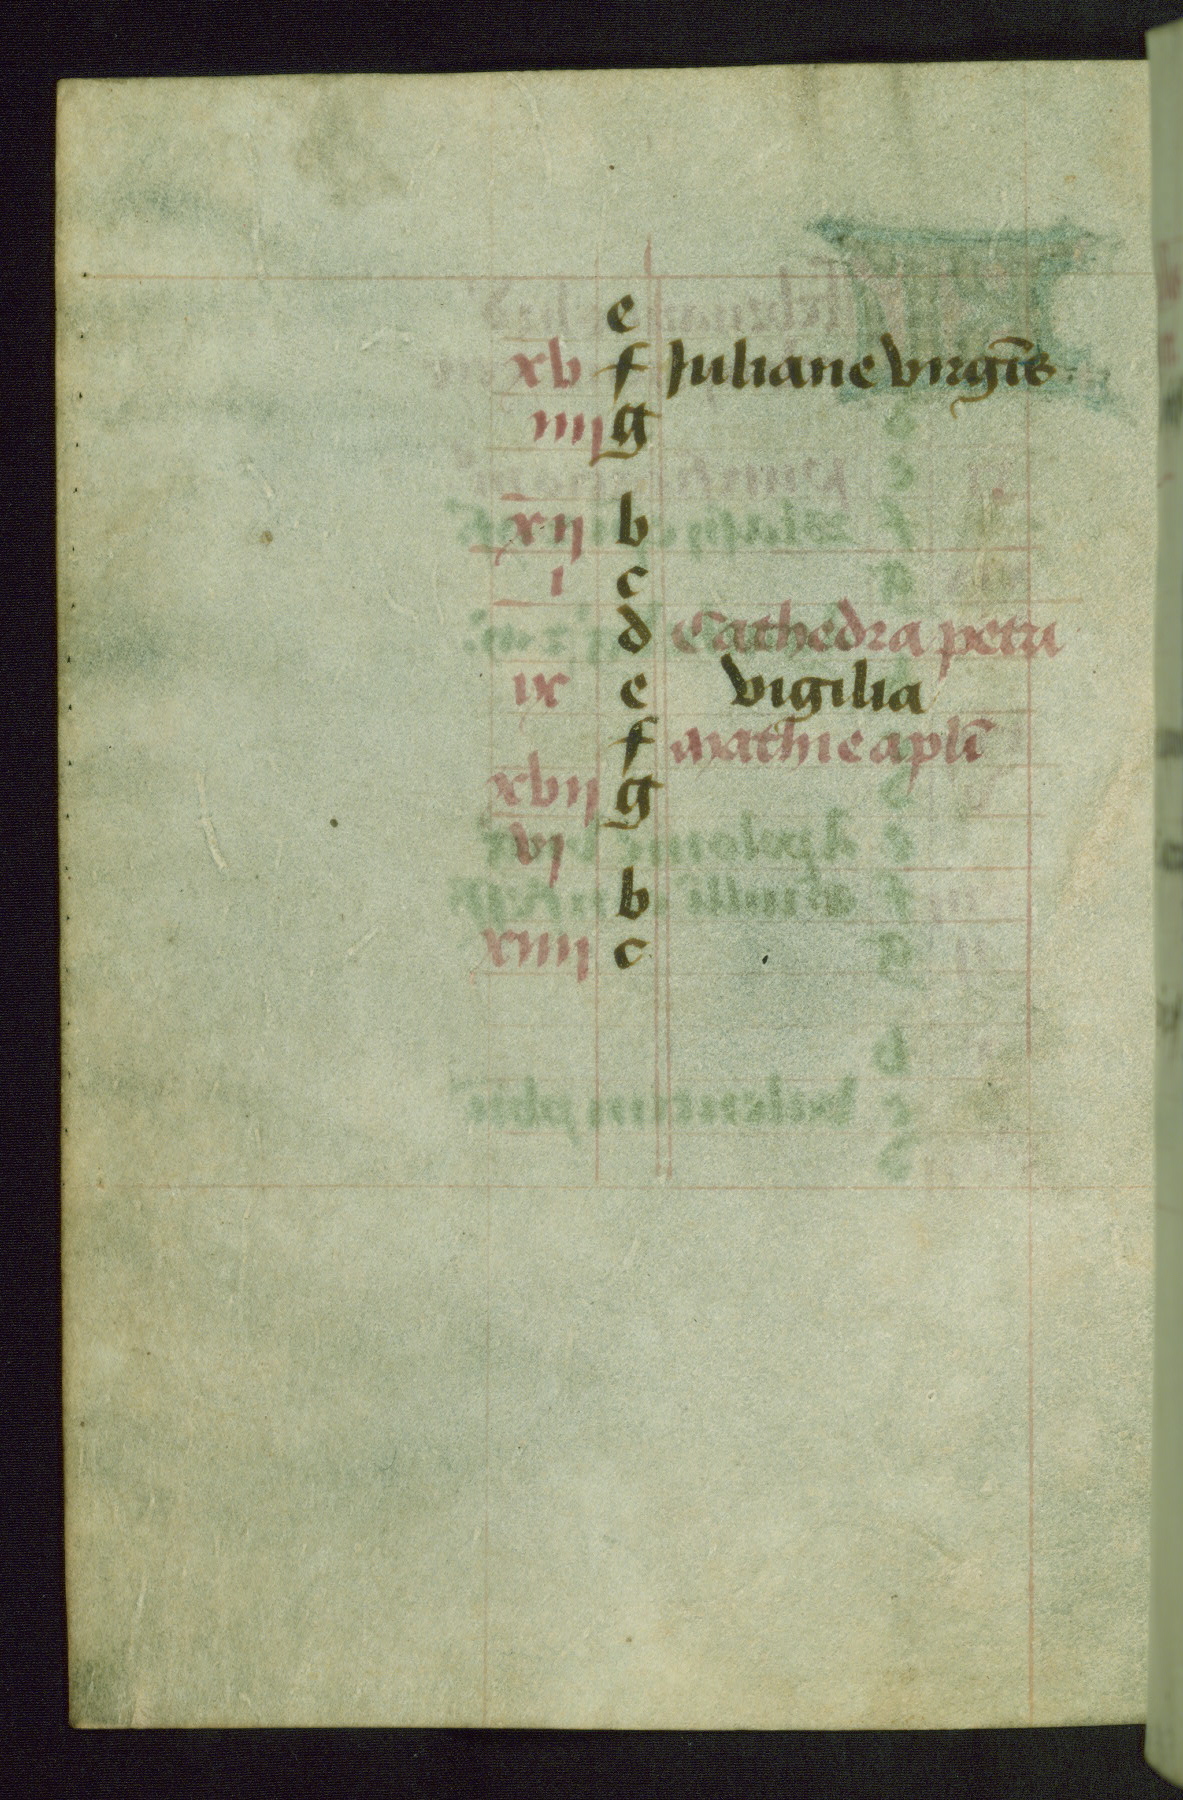 e
xv f Juliane virgīs
iiij g
xij b
i c
d Cathedra petri
ix e vigilia
f Mathie apłi
xvij g
vj
b
xiiij c